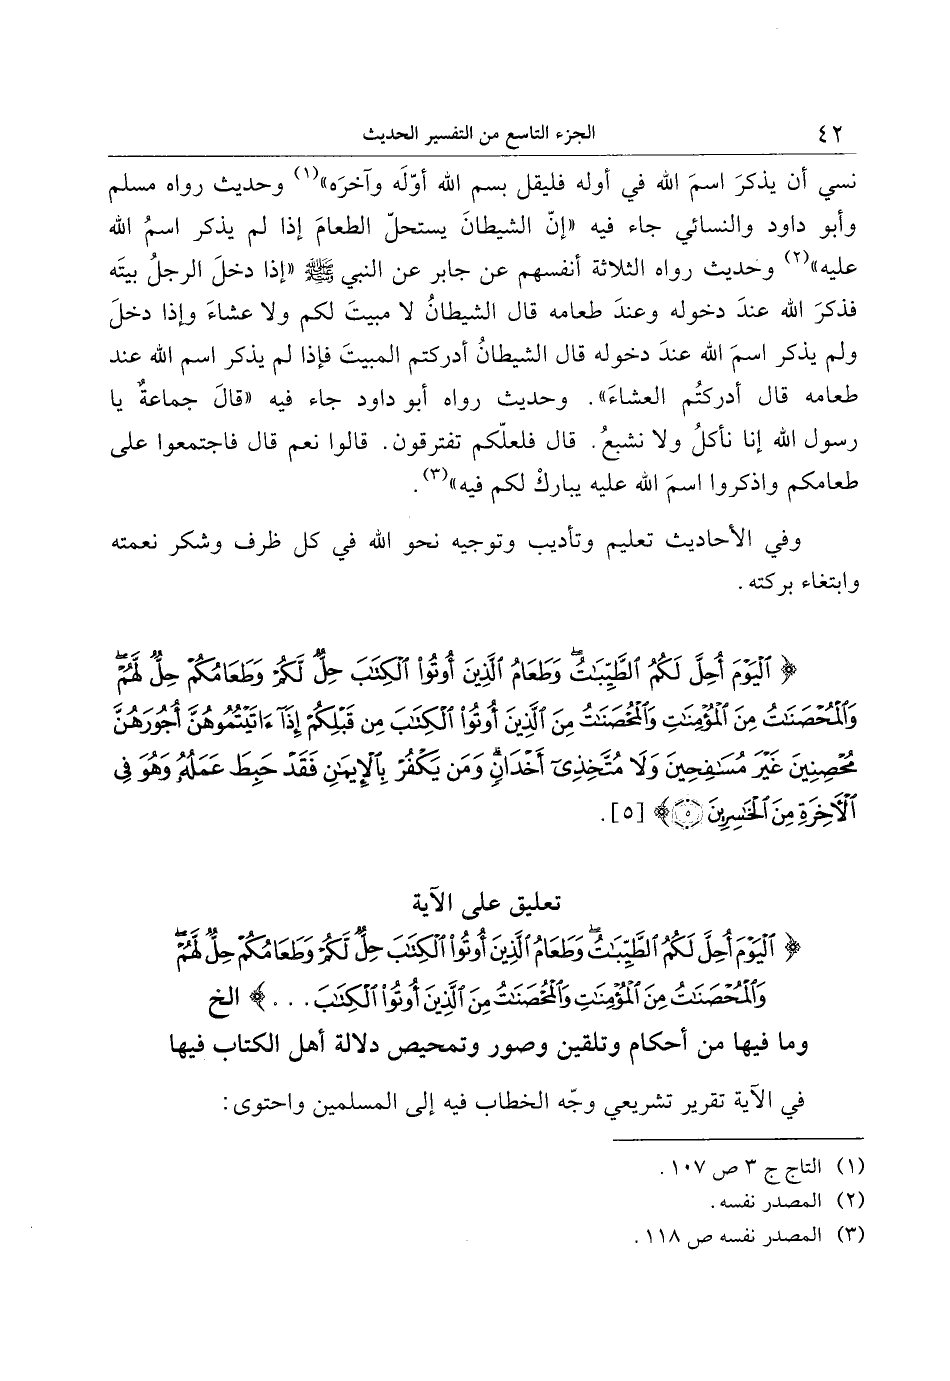 ٤٢ الجزء التاسع من التفسير الحديث
نسي أن يذكرَ اسمَ الله في أوله فليقل بسم الله أوّلَه وآخرَه»(١) وحديث رواه مسلم
وأبو داود والنسائي جاء فيه «إنّ الشيطانَ يستحلّ الطعامَ إذا لم يذكر اسمُ الله
عليه»(٢) وحديث رواه الثلاثة أنفسهم عن جابر عن النبي ﷺ «إذا دخلَ الرجلُ بيتَه
فذكرَ الله عندَ دخوله وعندَ طعامه قال الشيطانُ لا مبيتَ لكم ولا عشاءَ وإذا دخلَ
ولم يذكر اسمَ الله عندَ دخوله قال الشيطانُ أدركتم المبيتَ فإذا لم يذكر اسم الله عند
طعامه قال أدركتُم العشاءَ». وحديث رواه أبو داود جاء فيه «قالَ جماعةٌ يا
رسول الله إنا نأكلُ ولا نشبعُ. قال فلعلّكم تفترقون. قالوا نعم قال فاجتمعوا على
طعامكم واذكروا اسمَ الله عليه يباركْ لكم فيه»(٣).
وفي الأحاديث تعليم وتأديب وتوجيه نحو الله في كل ظرف وشكر نعمته
وابتغاء بركته.
﴿ ٱلْيَوْمَ أُحِلَّ لَكُمُ ٱلطَّيِّبَٰتُۖ وَطَعَامُ ٱلَّذِينَ أُوتُوا۟ ٱلْكِتَٰبَ حِلٌّ لَّكُمْ وَطَعَامُكُمْ حِلٌّ لَّهُمْۖ
وَٱلْمُحْصَنَٰتُ مِنَ ٱلْمُؤْمِنَٰتِ وَٱلْمُحْصَنَٰتُ مِنَ ٱلَّذِينَ أُوتُوا۟ ٱلْكِتَٰبَ مِن قَبْلِكُمْ إِذَآ ءَاتَيْتُمُوهُنَّ أُجُورَهُنَّ
مُحْصِنِينَ غَيْرَ مُسَٰفِحِينَ وَلَا مُتَّخِذِىٓ أَخْدَانٍۗ وَمَن يَكْفُرْ بِٱلْإِيمَٰنِ فَقَدْ حَبِطَ عَمَلُهُۥ وَهُوَ فِى
ٱلْءَاخِرَةِ مِنَ ٱلْخَٰسِرِينَ ۝٥ ﴾ [٥].
تعليق على الآية
﴿ ٱلْيَوْمَ أُحِلَّ لَكُمُ ٱلطَّيِّبَٰتُۖ وَطَعَامُ ٱلَّذِينَ أُوتُوا۟ ٱلْكِتَٰبَ حِلٌّ لَّكُمْ وَطَعَامُكُمْ حِلٌّ لَّهُمْۖ
وَٱلْمُحْصَنَٰتُ مِنَ ٱلْمُؤْمِنَٰتِ وَٱلْمُحْصَنَٰتُ مِنَ ٱلَّذِينَ أُوتُوا۟ ٱلْكِتَٰبَ... ﴾ الخ
وما فيها من أحكام وتلقين وصور وتمحيص دلالة أهل الكتاب فيها
في الآية تقرير تشريعي وجّه الخطاب فيه إلى المسلمين واحتوى:
(١) التاج ج ٣ ص ١٠٧.
(٢) المصدر نفسه.
(٣) المصدر نفسه ص ١١٨.